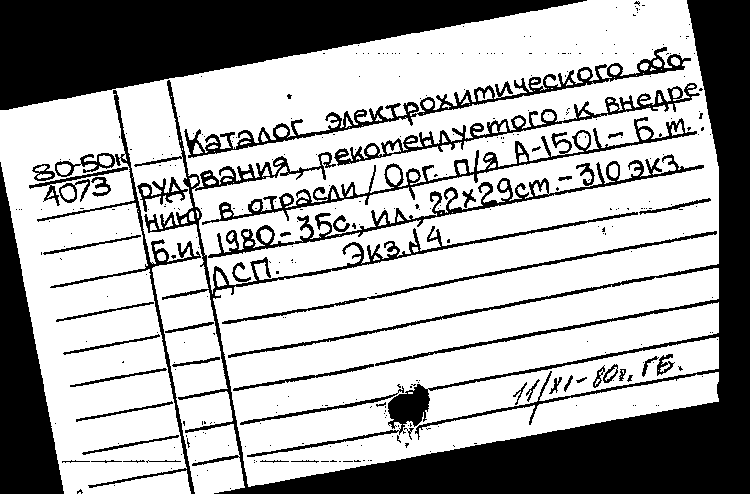 80-50к
4073
Каталог электрохимического обо-
рудования, рекомендуемого к внедре-
нию в отрасли / Орг. п/я А-1501.- Б.м.:
Б.и. 1980.- 35с., ил.; 22х29см.- 310 экз.
ДСП. Экз.№4.
11/XI-80г. ГБ.